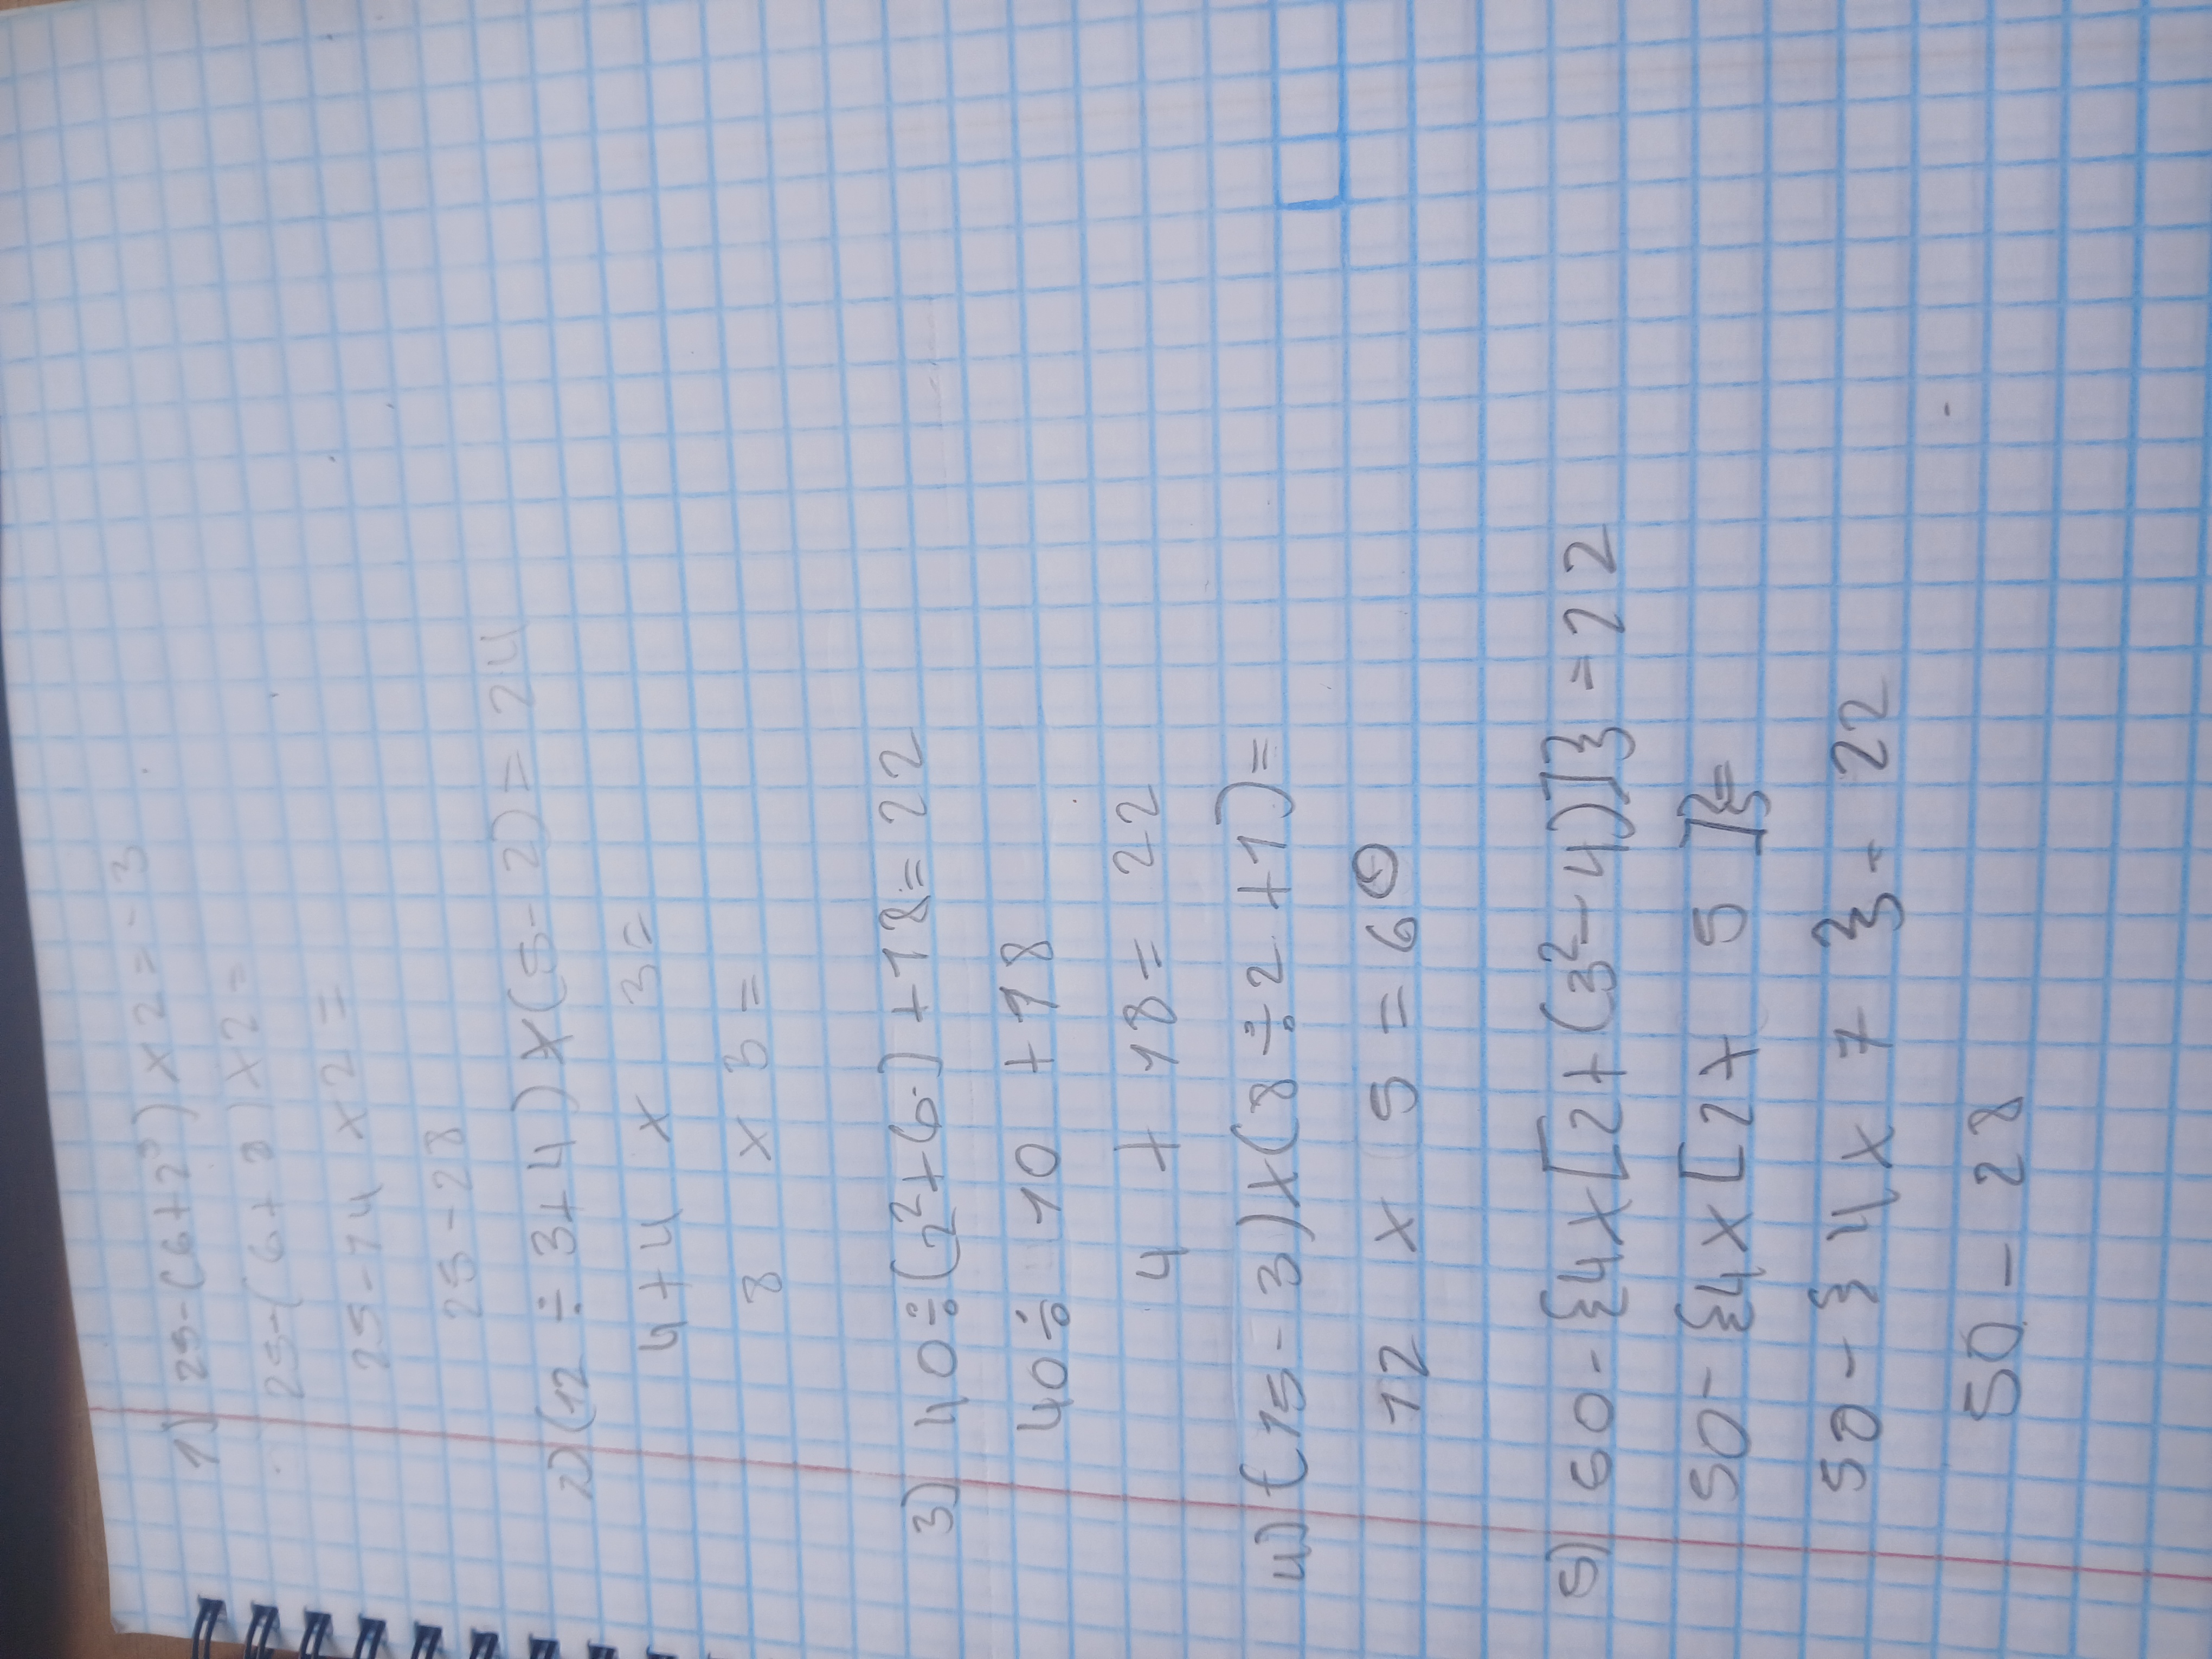 1) 25-(6+2³)x2=-3
25-(6+8)x2=
25-14x2=
25-28
2) (12÷3+4)x(5-2)=24
4+4 x 3=
8 x 3=
3) 40÷(2²+6)+18=22
40÷ 10 +18
4 + 18= 22
4) (15-3)x(8÷2+1)=
12 x 5 = 60
5) 50-{4x[2+(3²-4)]}=22
50-{4x[2+ 5 ]}=
50-}4x 7 }= 22
50-28